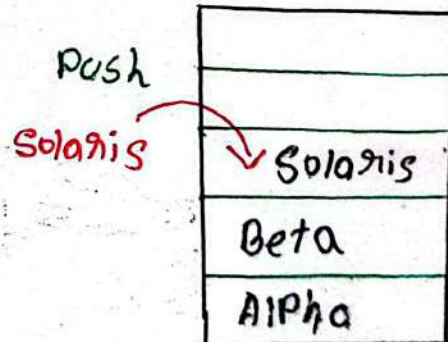 Push
Solaris
Solaris
Beta
Alpha